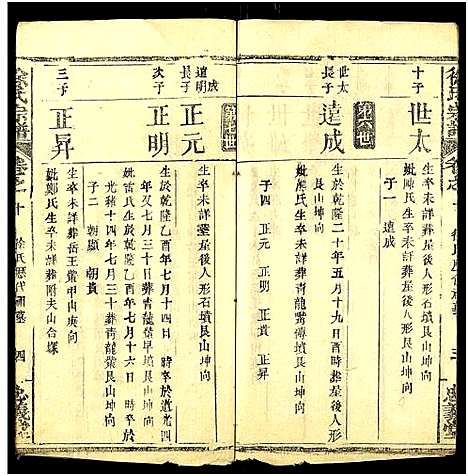 徐氏宗譜
卷之十
三
忠義堂
十子
世太
生卒未詳葬屋後人形石墳艮山坤向
妣陳氏生卒未詳葬屋後人形艮山坤向
子一 達成
世太長子
達成
生於乾隆二十年五月十九日酉時卒葬屋後人形
艮山坤向
妣熊氏生卒未詳葬青龍嘴傅墳艮山坤向
子四 正元 正明 正貴 正昇
達成長子
正元
生卒未詳葬屋後人形石墳艮山坤向
次子
正明
生於乾隆乙酉年七月十四日 時卒於道光四
年癸七月三十日葬青龍葉早墳艮山坤向
妣雷氏生於乾隆乙酉年七月十六日 時卒於
光緒十四年七月三十葬青龍葉艮山坤向
子二 朝顯 朝貴
三子
正昇
生卒未詳葬岳王葉甲山庚向
妣鄭氏生卒未詳葬附夫山合塚
徐氏宗譜
卷之十
徐氏歷代祖墓
四
忠義堂